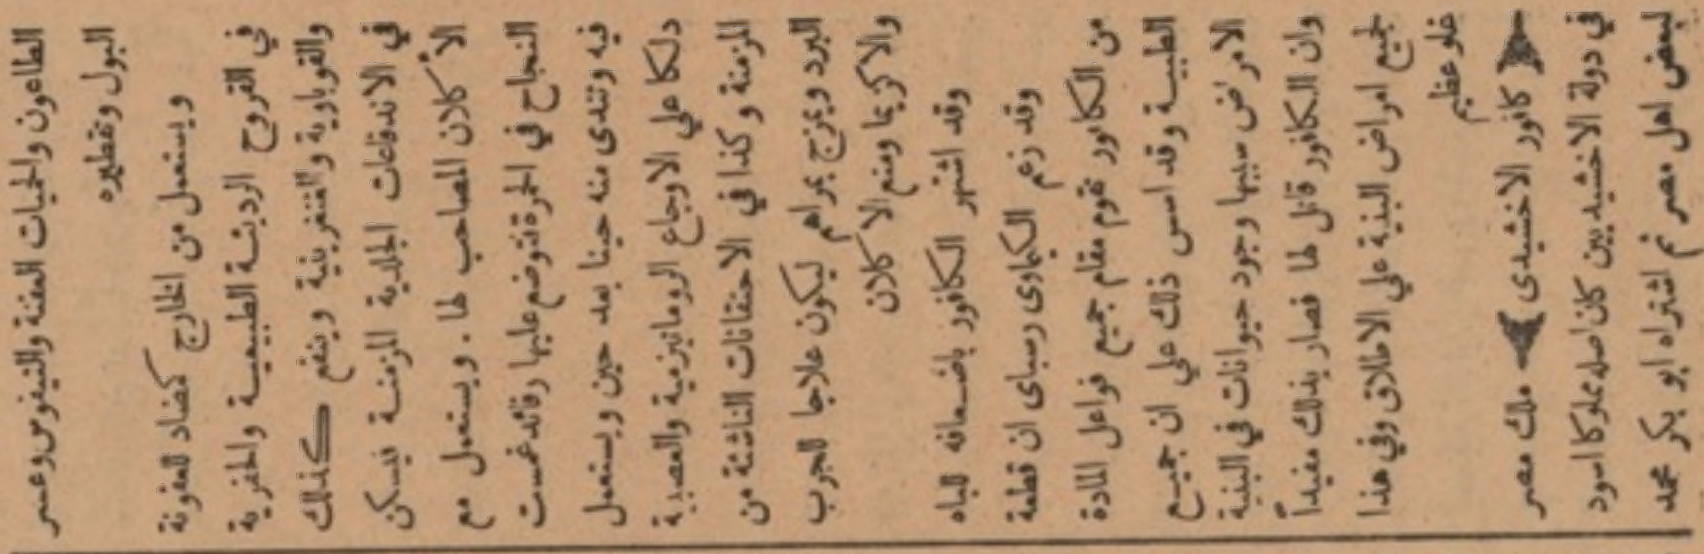 الطاعون والحميات العفنة والتيفوس وعسر
البول وتقطيره
ويستعمل من الخارج كمضاد للعفونة
في القروح الرديئة الطبيعية والحفرية
والقوباوية والغنغرينية وينفع كذلك
في الاندفاعات الجلدية المزمنة فيسكن
الأكلان المصاحب لها . ويستعمل مع
النجاح في الحمرة توضع عليها رفائد غمست
فيه وتندى منه حينا بعد حين ويستعمل
دلكا علي الاوجاع الروماتيزمية والعصبية
المزمنة وكذا في الاحتقانات الناشئة من
البرد ويمزج بمراهم ليكون علاجا للجرب
والاكزيما ومنع الاكلان
وقد اشتهر الكافور باضعافه للباه
وقد زعم الكيماوى رسباى ان قطعة
من الكافور تقوم مقام جميع فواعل المادة
الطبية وقد اسس ذلك علي ان جميع
الامراض سببها وجود حيوانات في البنية
وان الكافور قاتل لها فصار بذلك مفيداً
لجميع امراض البنية علي الاطلاق وفي هذا
غلو عظيم
كافور الاخشيدى ملك مصر
في دولة الاخشيديين كان اصله مملوكا اسود
لبعض اهل مصر ثم اشتراه ابو بكر محمد